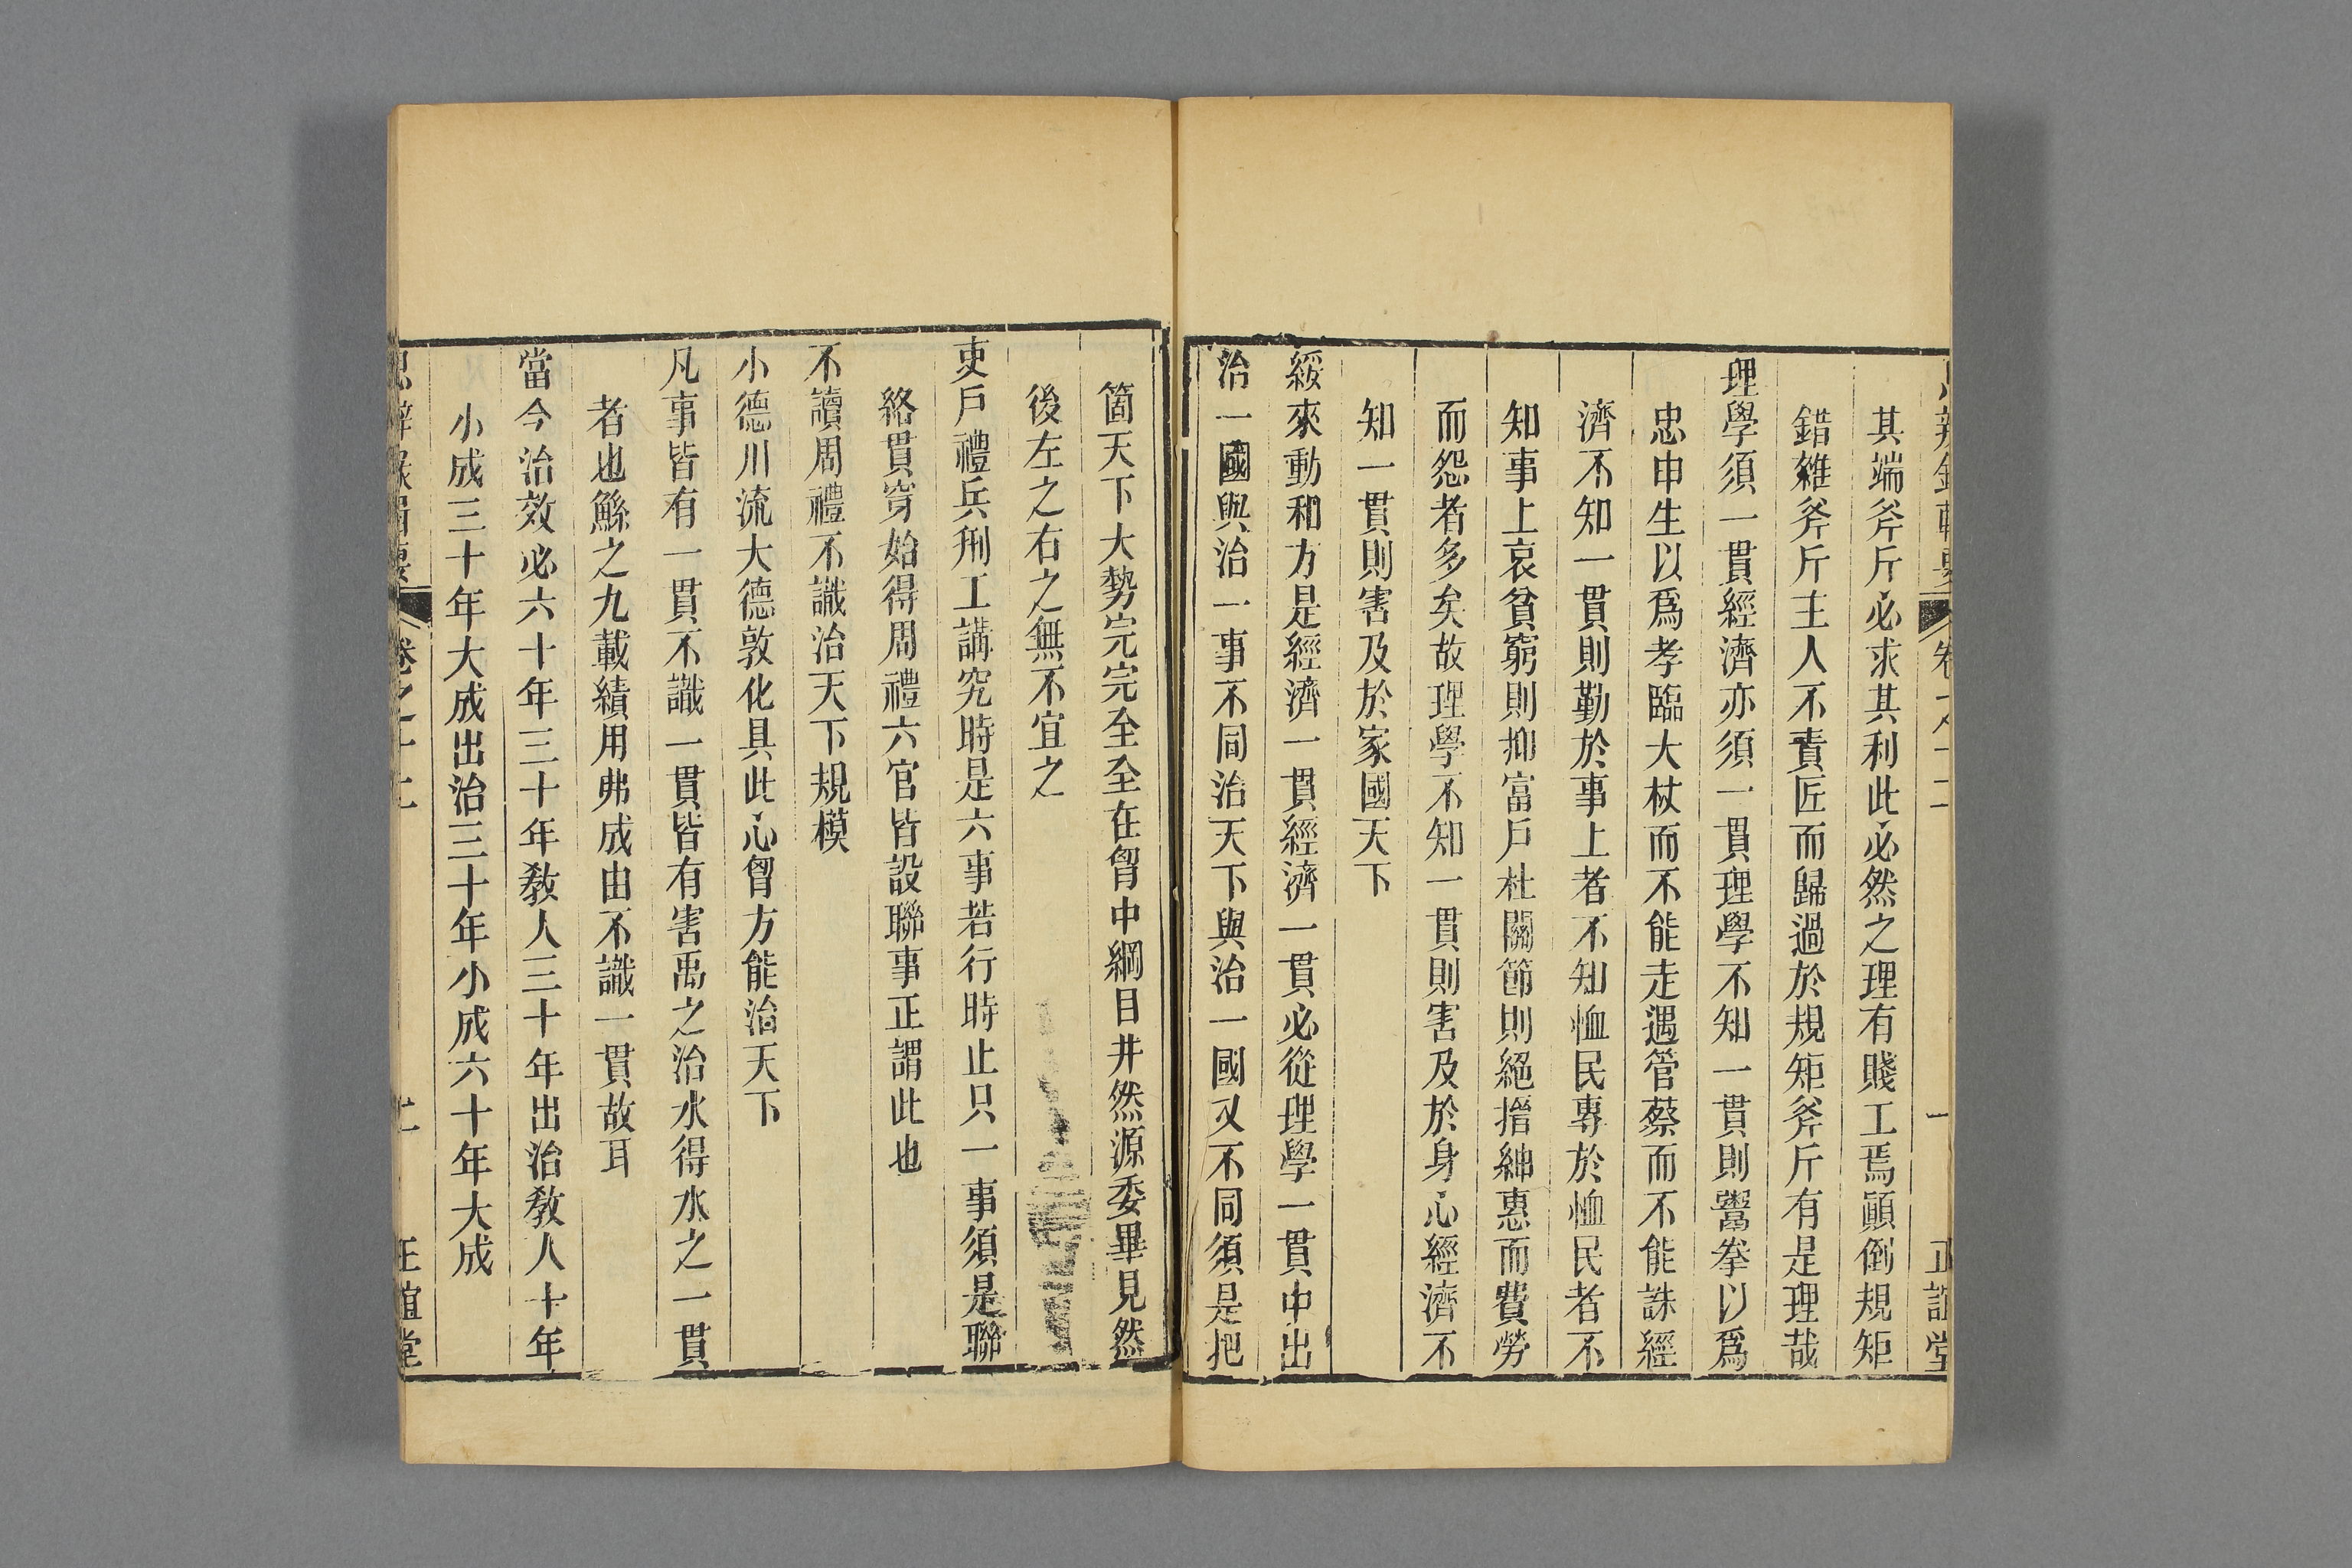 其端斧斤必求其利此必然之理有賤工焉顚倒規矩
錯雜斧斤主人不責匠而歸過於規矩斧斤有是理哉
理學須一貫經濟亦須一貫理學不知一貫則鬻拳以爲
忠申生以爲孝臨大杖而不能走遇管蔡而不能誅經
濟不知一貫則勤於事上者不知恤民專於恤民者不
知事上哀貧窮則抑富戶杜關節則絕搢紳惠而費勞
而怨者多矣故理學不知一貫則害及於身心經濟不
知一貫則害及於家國天下
綏來動和方是經濟一貫經濟一貫必從理學一貫中出
治一國與治一事不同治天下與治一國又不同須是把
箇天下大勢完完全全在胷中綱目井然源委畢見然
後左之右之無不宜之
吏戶禮兵刑工講究時是六事若行時止只一事須是聯
絡貫穿始得周禮六官皆設聯事正謂此也
不讀周禮不識治天下規模
小德川流大德敦化具此心胷方能治天下
凡事皆有一貫不識一貫皆有害禹之治水得水之一貫
者也鯀之九載績用弗成由不識一貫故耳
當今治效必六十年三十年敎人三十年出治敎人十年
小成三十年大成出治三十年小成六十年大成
卷之 二 正誼堂